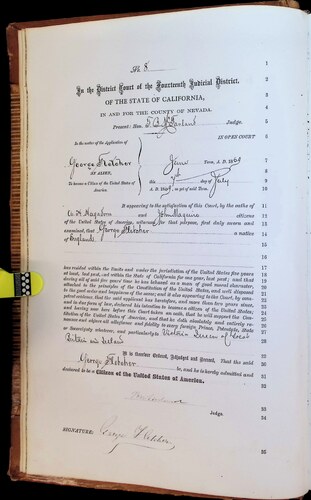 No 8
In the District Court of the Fourteenth Judicial District.
OF THE STATE OF CALIFORNIA,
IN AND FOR THE COUNTY OF NEVADA.
Present: Hon. T. B. McFarland Judge.
In the matter of the Application of
IN OPEN COURT
George Fletcher
June Term, A. D. 1869
AN ALIEN,
This 7th day of July
To become a Citizen of the United States of America
A. D. 1869, as yet of said Term.
It appearing to the satisfaction of this Court, by the oaths of
and John Maguire citizens
of the United States of America, informed for that purpose, first duly sworn and
examined, that George Fletcher a native
of England
has resided within the limits and under the jurisdiction of the United States five years
at least, last past, and within the State of California for one year, last past; and that
during all of said five years' time he has behaved as a man of good moral character,
attached to the principles of the Constitution of the United States, and well disposed
to the good order and happiness of the same; and it also appearing to the Court, by competent
evidence, that the said applicant has heretofore, and more than two years since,
and in due form of law, declared his intention to become a citizen of the United States;
and having now here before this Court taken an oath, that he will support the Constitution
of the United States of America, and that he doth absolutely and entirely renounce
and abjure all allegiance and fidelity to every foreign Prince, Potentate, State
or Sovereignty whatever, and particularly to Victoria Queen of Great
Britain and Ireland
It is therefore Ordered, Adjudged and Decreed, That the said
George Fletcher be, and he is hereby admitted and
declared to be a Citizen of the United States of America.
Judge.
SIGNATURE: George Fletcher
1
2
3
4
5
6
7
8
9
10
11
12
13
14
15
16
17
18
19
20
21
22
23
24
25
26
27
28
29
30
31
32
33
34
35